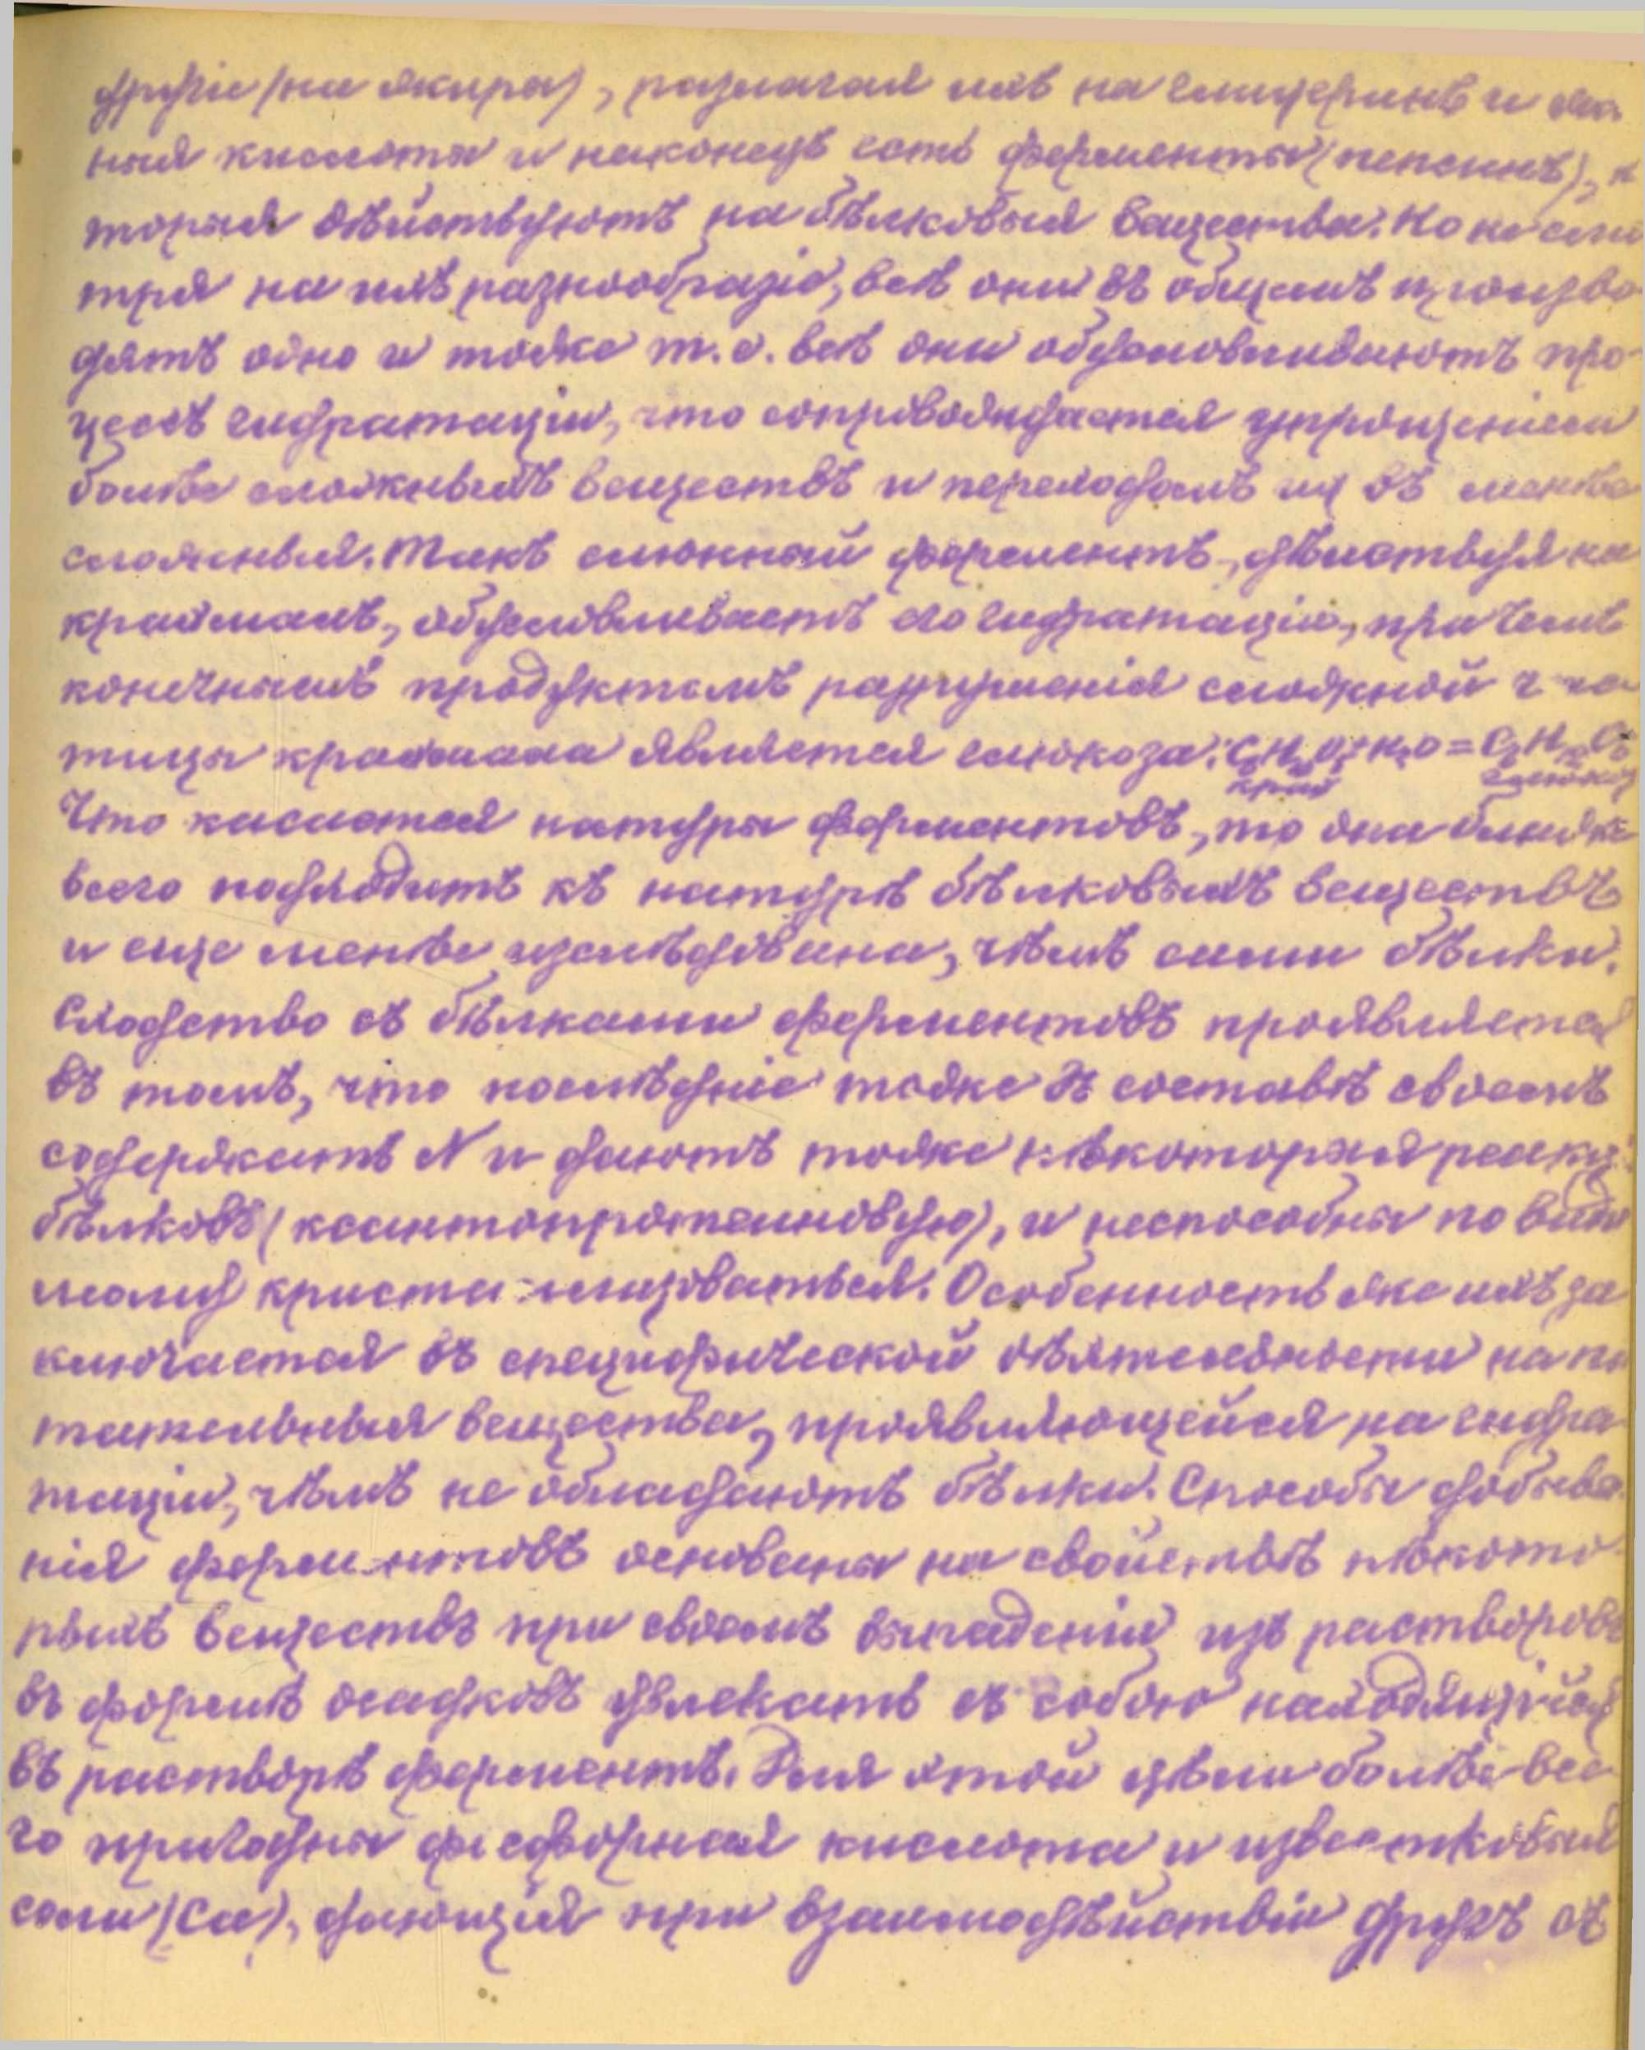 другіе (на жиры), разлагая ихъ на глицеринъ и жир-
ныя кислоты и наконецъ есть ферменты (пепсинъ), ко
торыя дѣйствуютъ на бѣлковыя вещества. Но не смо
тря на ихъ разнообразіе, всѣ они въ общемъ произво
дятъ одно и тоже т.е. всѣ они обусловливаютъ про-
цессъ гидратаціи, что сопровождается упрощеніемъ
болѣе сложныхъ веществъ и переходомъ их въ менѣе
сложныя. Такъ слюнный ферментъ, дѣйствуя на
крахмалъ, обусловливаетъ его гидратацію, при чемъ
конечнымъ продуктомъ разрушенія сложной ча
тицы крахмала является глюкоза: C6H10O5+H2O=C6H12O6
крах глюкоз
Что касается натуры ферментовъ, то она ближе
всего подходитъ къ натурѣ бѣлковыхъ веществъ
и еще менѣе изслѣдована, чѣмъ сами бѣлки.
Сходство съ бѣлками ферментовъ проявляется
въ томъ, что послѣдніе тоже въ составѣ своемъ
содержатъ N и даютъ тоже нѣкоторыя реакц.
бѣлковъ (ксантопротеиновую), и неспособны по види
мому кристаллизоваться. Особенность же ихъ за
ключается въ специфической дѣятельности на пи
тательныя вещества, проявляющейся на гидра
таціи, чѣмъ не обладаютъ бѣлки. Способы добыва-
нія ферментовъ основаны на свойствѣ нѣкото-
рыхъ веществъ при своемъ выпаденіи изъ растворовъ
въ формѣ осадковъ увлекать съ собою находящійся
въ растворѣ ферментъ. Для этой цѣли болѣе все
го пригодны фосфорная кислота и известковыя
соли (Ca), дающія при взаимодѣйствіи другъ съ